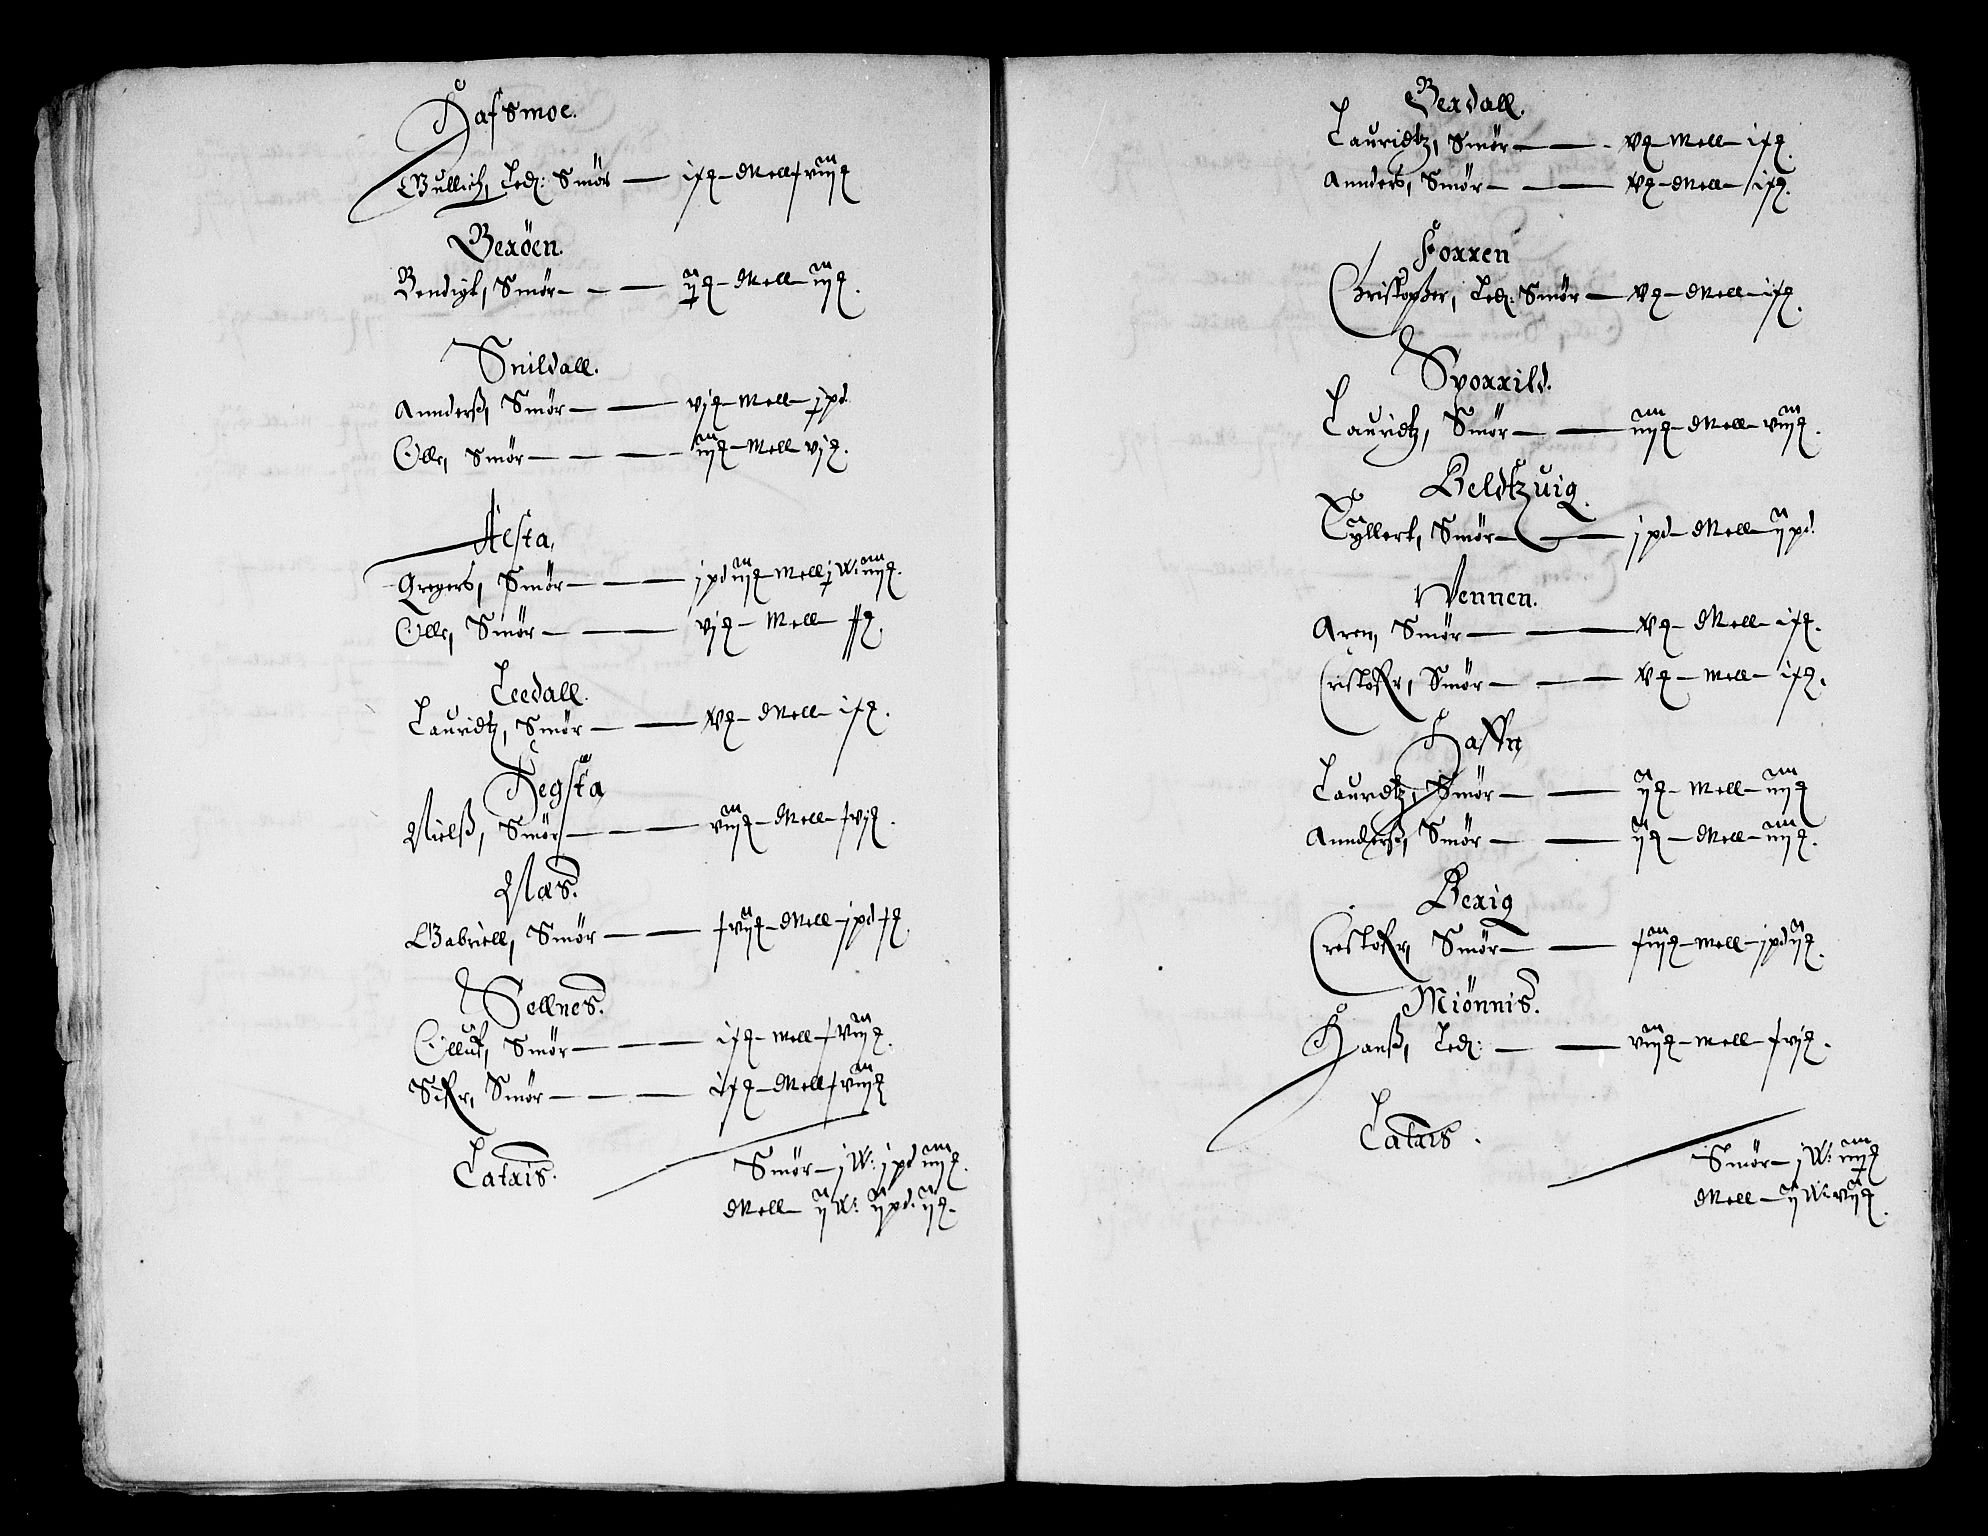 Hafsmoe.
Gullich, Led: Smör — ix ℔ — Mell xviij ℔
Bexöen.
Bendigt, Smör — — ij ℔ — Mell iij ℔.
Snildall.
Annderß, Smör — — vj ℔ — Mell — j pd
Olle, Smör — — — iij ℔ — Mell vj ℔.
Aesta,
Gregers, Smör — — j pd iij ℔ — Mell j W: iiij ℔.
Olle, Smör — — vj ℔ — Mell xx ℔.
Leedall.
Lauridtz, Smör — — xv ℔ — Mell ix ℔.
Hegsta
Nielß, Smör — — — viij ℔ — Mell xvj ℔.
Næs.
Gabriell, Smör — — xvij ℔ — Mell — j pd x ℔.
Sellnes.
Olluf, Smör — — — ix ℔ — Mell xviij ℔.
Siffr, Smör — — — ix ℔ — Mell xviij ℔
Lataris.
Smör — j W: j pd iiij ℔.
Mell — ij W: ij pd: ij ℔.
Bexdall.
Lauridtz, Smör — — - v ℔ — Mell — ix ℔.
Annders, Smör — — xv ℔ — Mell — ix ℔.
Foxxen
Christopher, Led: Smör — xv ℔ — Mell — ix ℔.
Spoxxild.
Lauridtz, Smör — — iiij ℔ — Mell viij ℔.
Beldtzuig.
Eyllert, Smör — — j pd — Mell ij pd.
Vennen.
Aren, Smör — — xv ℔ — Mell — ix ℔.
Cristoffr, Smör — — xv ℔ — Mell — ix ℔.
Haffn
Lauridtz, Smör — — ij ℔ — Mell — iiij ℔
Annderß, Smör — — ij ℔ — Mell — iiij ℔.
Bexig
Crestoffr, Smör — — xiij ℔ — Mell — j pd ij ℔.
Miönnis.
Hanß, Led: — — viij ℔ — Mell xvj ℔.
Lataris.
Smör — j W: iiij ℔
Mell — ij W: vij ℔.